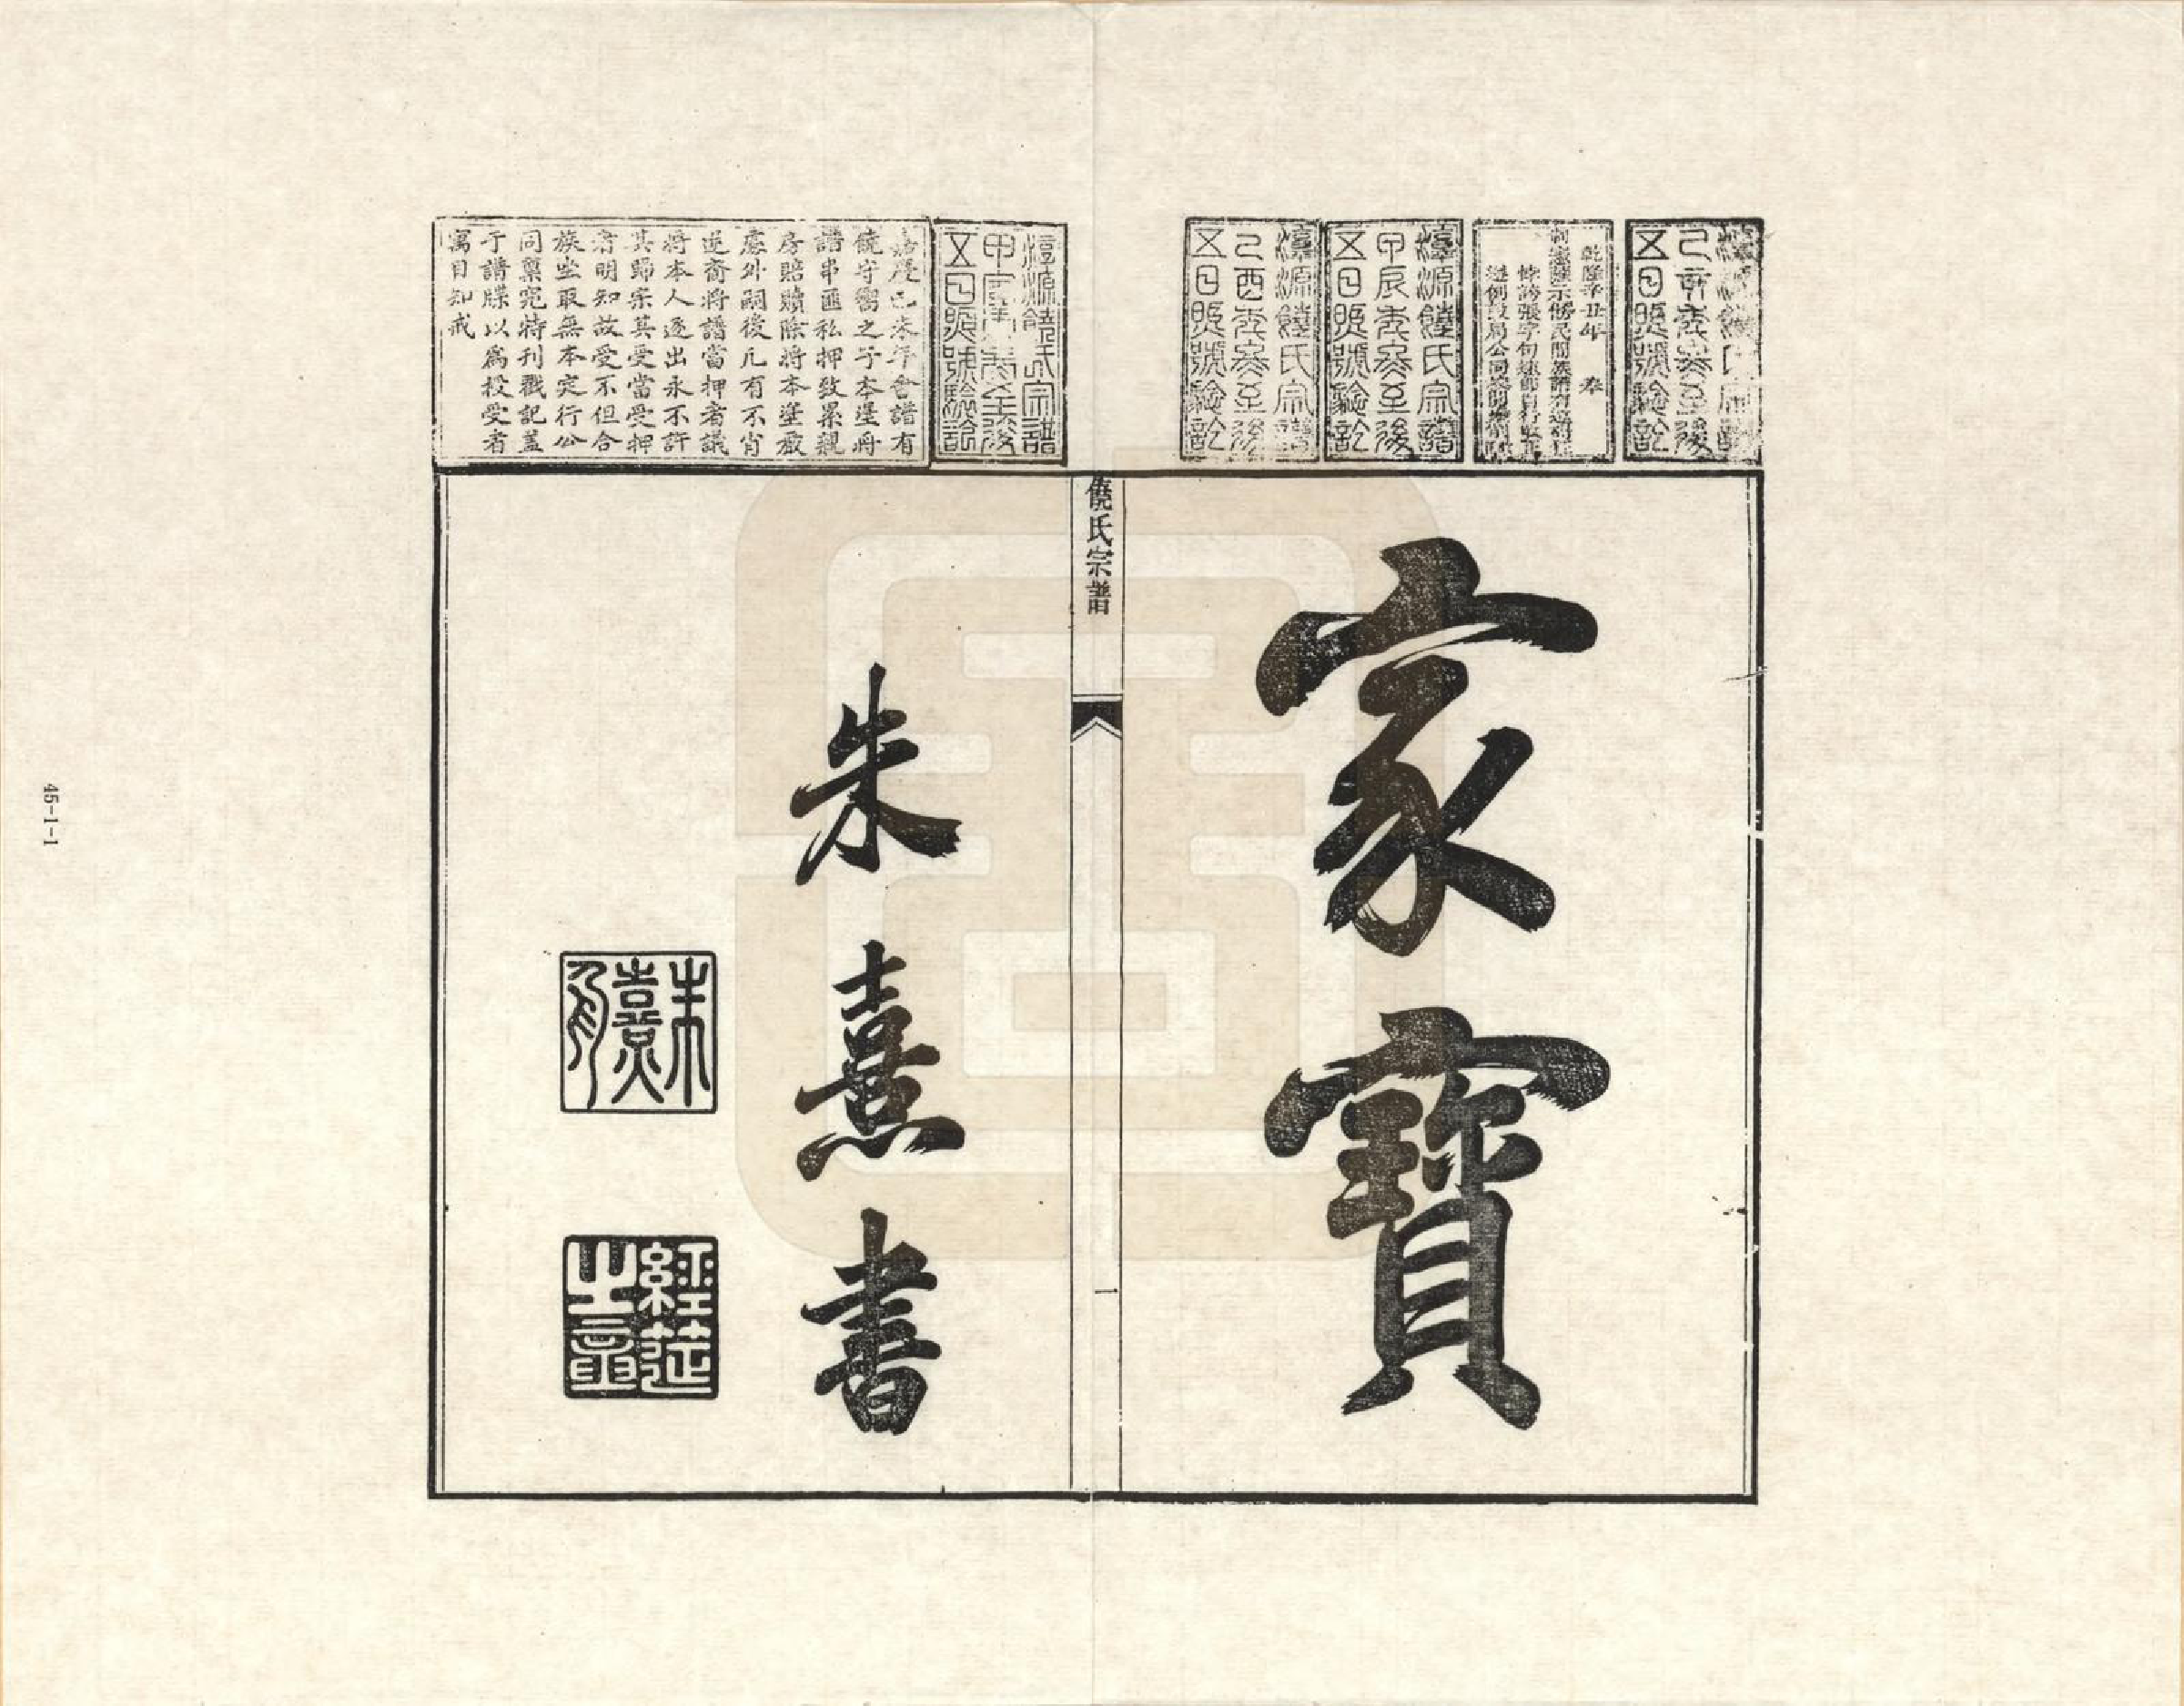 家寶
饒氏宗譜
一
朱熹書
朱熹
經筵之章
己亥
五日照號驗訖
乾隆辛丑年 奉
漳源饒氏宗譜
甲辰年冬至後
五日照號驗訖
漳源饒氏宗譜
己酉年冬至後
五日照號驗訖
漳源饒氏宗譜
五日照號驗訖
嘉慶己未年會譜有
饒守嚮之子本堂將
譜串匪私押致累親
房賠贖除將本堂嚴
處外嗣後凡有不肖
逆裔將譜當押者議
將本人逐出永不許
其歸宗其受當受押
者明知故受不但合
族坐取無本定行公
同稟究特刊戳記蓋
于譜牒以爲授受者
寓目知戒
45-1-1